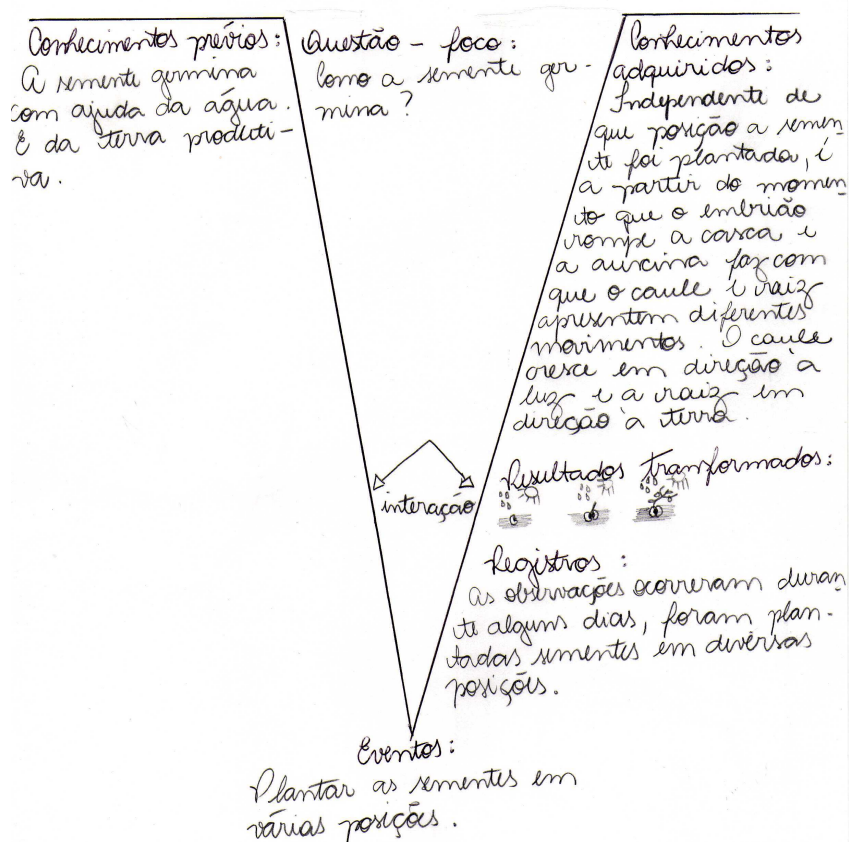 Conhecimentos prévios:
A semente germina
com ajuda da água.
E da terra produti-
va.
Questão - foco:
Como a semente ger-
mina?
Conhecimentos
adquiridos:
Independente de
que posição a semen
te foi plantada, é
a partir do momen
to que o embrião
rompe a casca e
a auxina faz com
que o caule e raiz
apresentem diferentes
movimentos. O caule
cresce em direção à
luz e a raiz em
direção à terra.
interação
Resultados transformados:
Registros:
As observações ocorreram duran
te alguns dias, foram plan-
tadas sementes em diversas
posições.
Eventos:
Plantar as sementes em
várias posições.